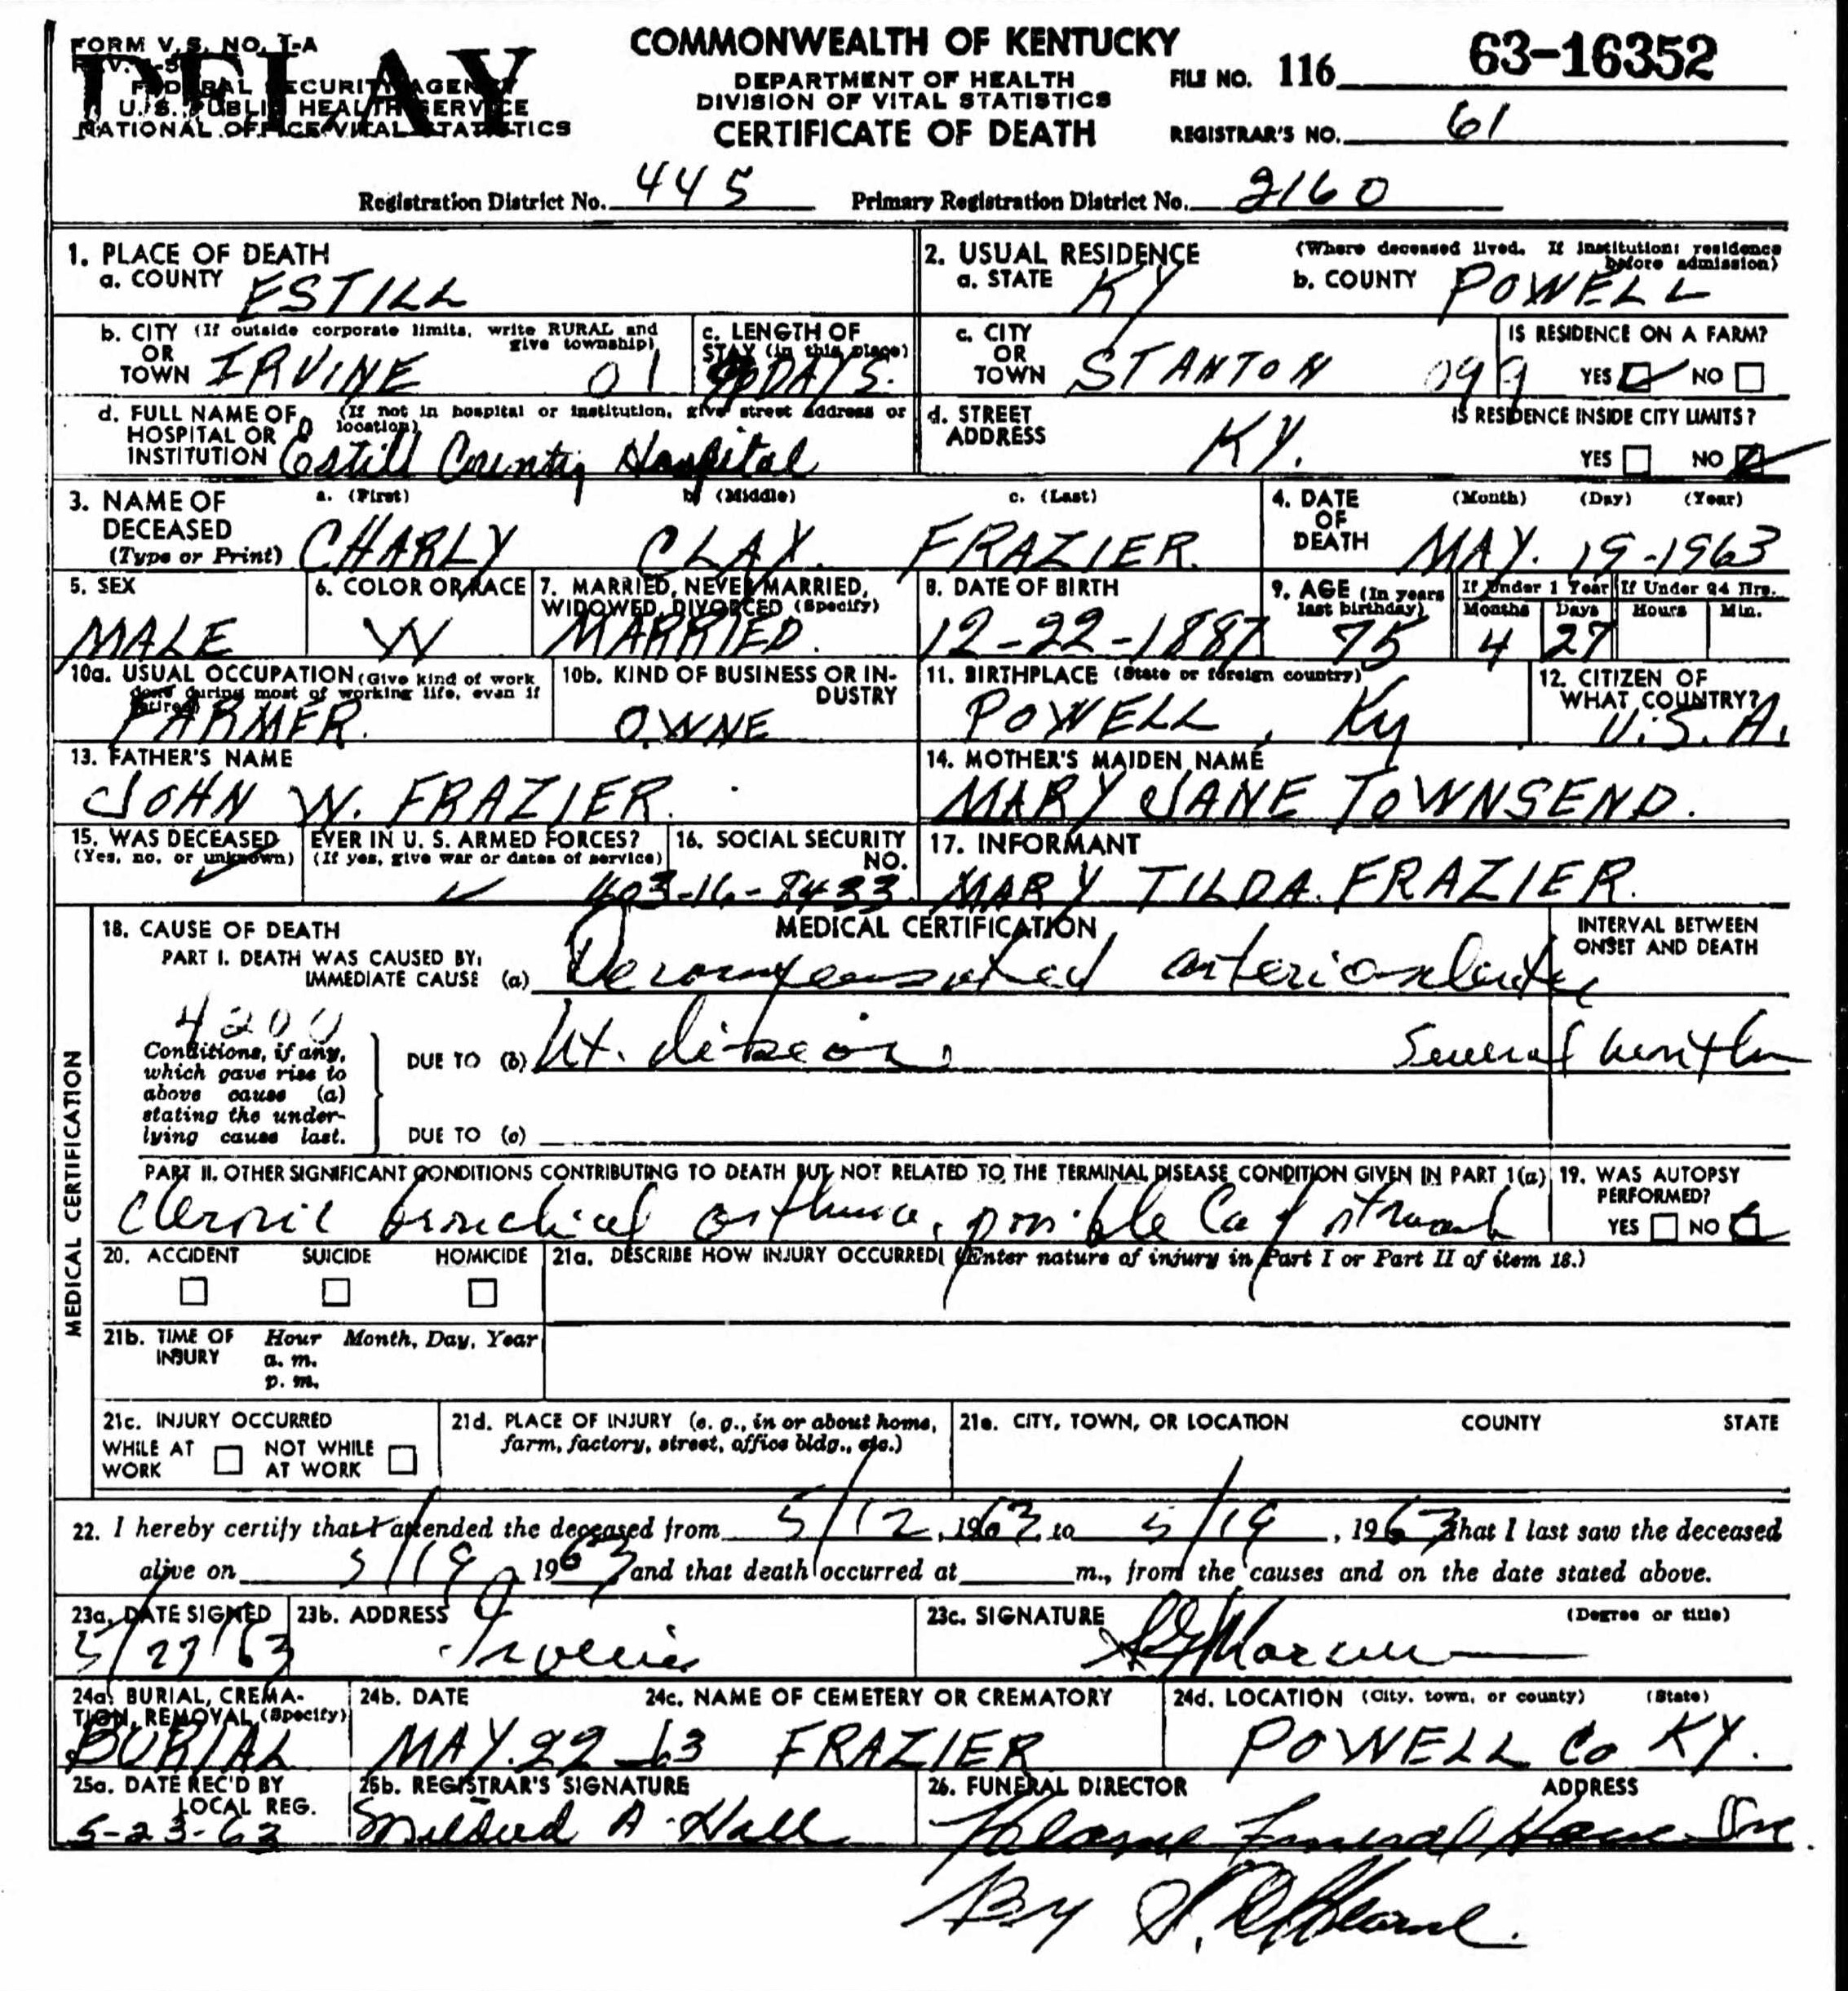 FORM V. S. NO. I-A
DELAY
FEDERAL SECURITY AGENCY
U. S. PUBLIC HEALTH SERVICE
NATIONAL OFFICE VITAL STATISTICS
COMMONWEALTH OF KENTUCKY
DEPARTMENT OF HEALTH
DIVISION OF VITAL STATISTICS
CERTIFICATE OF DEATH
FILE NO. 116 63-16352
REGISTRAR'S NO. 61
Registration District No. 445 Primary Registration District No. 2160
1. PLACE OF DEATH
a. COUNTY ESTILL
2. USUAL RESIDENCE (Where deceased lived. If institution: residence before admission)
a. STATE KY b. COUNTY POWELL
b. CITY (If outside corporate limits, write RURAL and give township)
OR
TOWN IRVINE 01
c. LENGTH OF
STAY (in this place)
DAYS.
c. CITY
OR
TOWN STANTON 099
IS RESIDENCE ON A FARM?
YES NO
d. FULL NAME OF (If not in hospital or institution, give street address or location)
HOSPITAL OR
INSTITUTION Estill County Hospital
d. STREET
ADDRESS KY.
IS RESIDENCE INSIDE CITY LIMITS?
YES NO
3. NAME OF
DECEASED
(Type or Print)
a. (First) b. (Middle) c. (Last)
CHARLY CLAY. FRAZIER.
4. DATE
OF
DEATH
(Month) (Day) (Year)
MAY. 19-1963
5. SEX
MALE
6. COLOR OR RACE
W
7. MARRIED, NEVER MARRIED,
WIDOWED, DIVORCED (Specify)
MARRIED.
8. DATE OF BIRTH
12-22-1887
9. AGE (In years
last birthday)
75
If Under 1 Year If Under 24 Hrs.
Months Days Hours Min.
4 27
10a. USUAL OCCUPATION (Give kind of work
done during most of working life, even if
retired)
FARMER.
10b. KIND OF BUSINESS OR IN-
DUSTRY
OWNE
11. BIRTHPLACE (State or foreign country)
POWELL, Ky
12. CITIZEN OF
WHAT COUNTRY?
U.S.A.
13. FATHER'S NAME
JOHN W. FRAZIER.
14. MOTHER'S MAIDEN NAME
MARY JANE TOWNSEND.
15. WAS DECEASED EVER IN U. S. ARMED FORCES?
(Yes, no, or unknown) (If yes, give war or dates of service)
16. SOCIAL SECURITY
NO.
403-16-8433
17. INFORMANT
MARY TILDA. FRAZIER.
MEDICAL CERTIFICATION
18. CAUSE OF DEATH
MEDICAL CERTIFICATION
INTERVAL BETWEEN
ONSET AND DEATH
PART I. DEATH WAS CAUSED BY:
IMMEDIATE CAUSE (a) Decompensated arteriosclerotic
4200
Conditions, if any,
which gave rise to
above cause (a)
stating the under-
lying cause last.
DUE TO (b) Ht. disease Several months
DUE TO (c)
PART II. OTHER SIGNIFICANT CONDITIONS CONTRIBUTING TO DEATH BUT NOT RELATED TO THE TERMINAL DISEASE CONDITION GIVEN IN PART 1(a)
Chronic bronchial asthma, possible Ca of stomach
19. WAS AUTOPSY
PERFORMED?
YES NO
20. ACCIDENT SUICIDE HOMICIDE
21a. DESCRIBE HOW INJURY OCCURRED! (Enter nature of injury in Part I or Part II of item 18.)
21b. TIME OF
INJURY
Hour Month, Day, Year
a. m.
p. m.
21c. INJURY OCCURRED
WHILE AT
WORK
NOT WHILE
AT WORK
21d. PLACE OF INJURY (e. g., in or about home,
farm, factory, street, office bldg., etc.)
21e. CITY, TOWN, OR LOCATION COUNTY STATE
22. I hereby certify that I attended the deceased from 5/12, 1963, to 5/19, 1963 that I last saw the deceased
alive on 5/19, 1963 and that death occurred at m., from the causes and on the date stated above.
23a. DATE SIGNED
23b. ADDRESS
Irvine
23c. SIGNATURE (Degree or title)
24a. BURIAL, CREMA-
TION, REMOVAL (Specify)
BURIAL
24b. DATE
MAY. 22-63
24c. NAME OF CEMETERY OR CREMATORY
FRAZIER
24d. LOCATION (City, town, or county) (State)
POWELL Co KY.
25a. DATE REC'D BY
LOCAL REG.
5-23-63
25b. REGISTRAR'S SIGNATURE
Mildred A. Hall
26. FUNERAL DIRECTOR ADDRESS
Hearne Funeral Home Inc.
By Hearne.